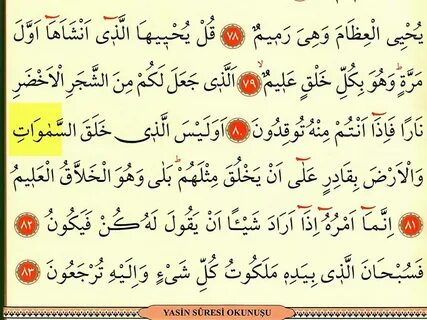 يُحْيِي الْعِظَامَ وَهِيَ رَمِيمٌ ﴿٧٨﴾ قُلْ يُحْيِيهَا الَّذٖٓي اَنْشَاَهَٓا اَوَّلَ
مَرَّةٍ وَهُوَ بِكُلِّ خَلْقٍ عَلِيمٌ ﴿٧٩﴾ اَلَّذِي جَعَلَ لَكُمْ مِنَ الشَّجَرِ الْاَخْضَرِ
نَارًا فَاِذَٓا اَنْتُمْ مِنْهُ تُوقِدُونَ ﴿٨٠﴾ اَوَلَيْسَ الَّذِي خَلَقَ السَّمٰوَاتِ
وَالْاَرْضَ بِقَادِرٍ عَلٰٓى اَنْ يَخْلُقَ مِثْلَهُمْ بَلٰى وَهُوَ الْخَلَّاقُ الْعَلِيمُ
﴿٨١﴾ اِنَّمَٓا اَمْرُهُٓ اِذَٓا اَرَادَ شَيْـًٔا اَنْ يَقُولَ لَهُ كُنْ فَيَكُونُ ﴿٨٢﴾
فَسُبْحَانَ الَّذِي بِيَدِهِ مَلَكُوتُ كُلِّ شَيْءٍ وَاِلَيْهِ تُرْجَعُونَ ﴿٨٣﴾
YASİN SÛRESİ OKUNUŞU